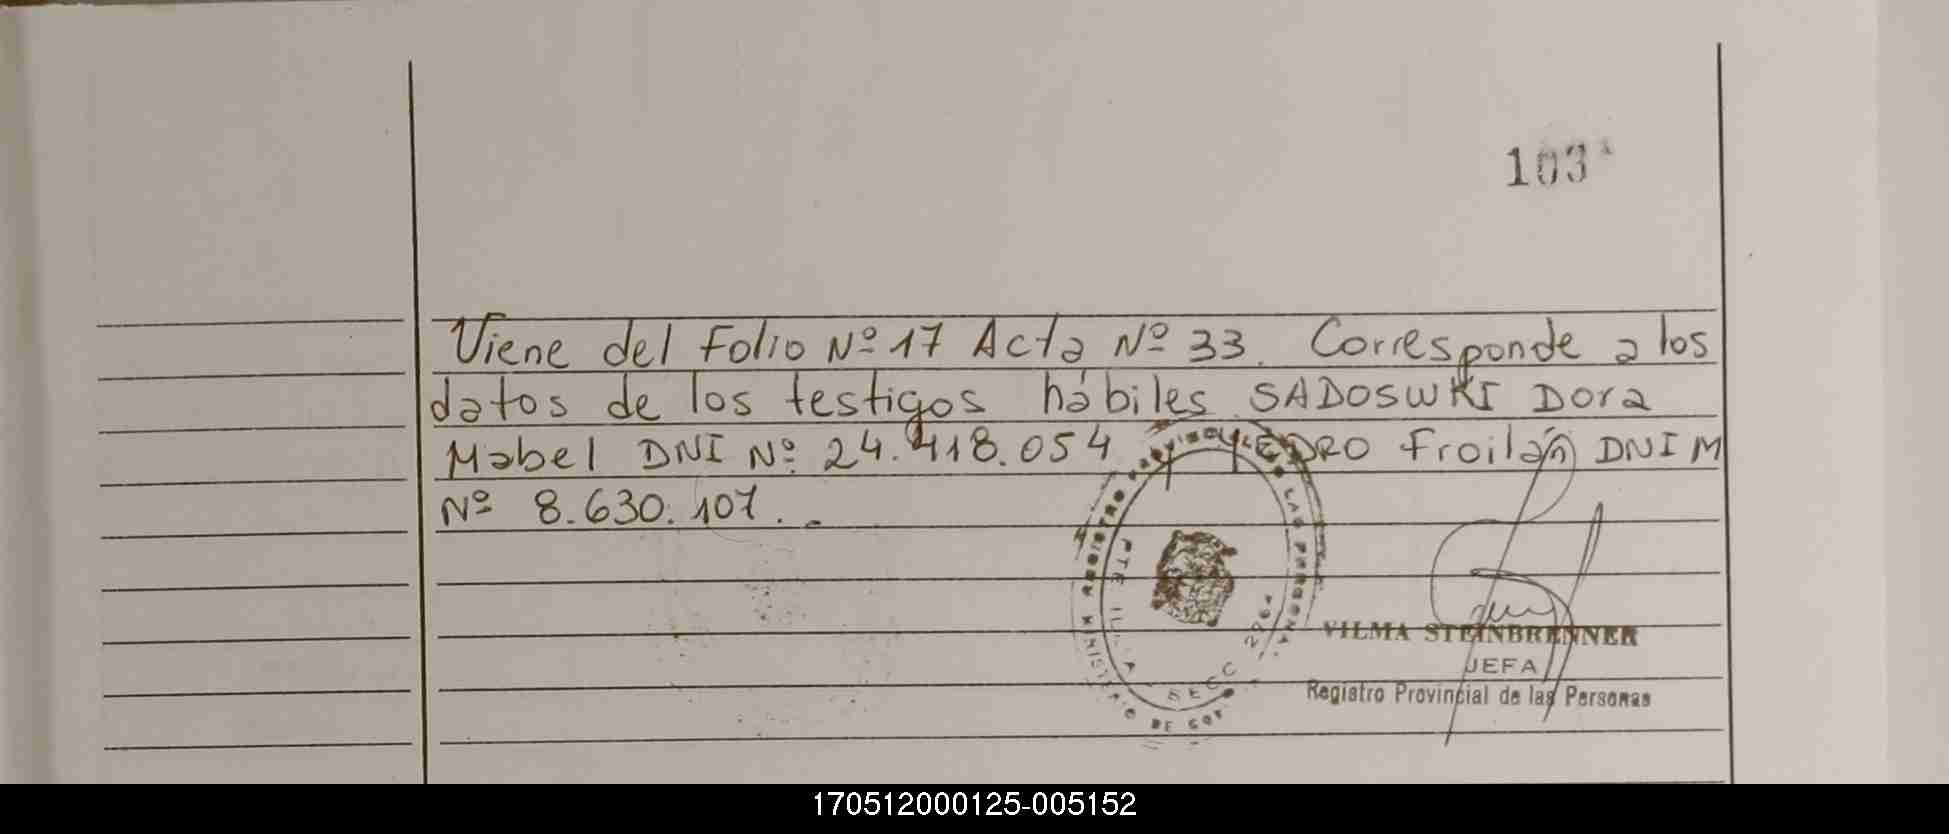 103
Viene del Folio Nº 17 Acta Nº 33. Corresponde a los
datos de los testigos hábiles SADOSWKI Dora
Mabel DNI Nº 24.418.054 y YEDRO Froilán DNI M
Nº 8.630.107.-
REGISTRO LAS PERSONA
MINISTERIO DE GOB
SECC
VILMA STEINBRENNER
JEFA
Registro Provincial de las Personas
170512000125-005152